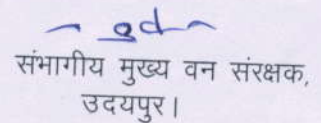 संभागीय मुख्य वन संरक्षक,
उदयपुर।